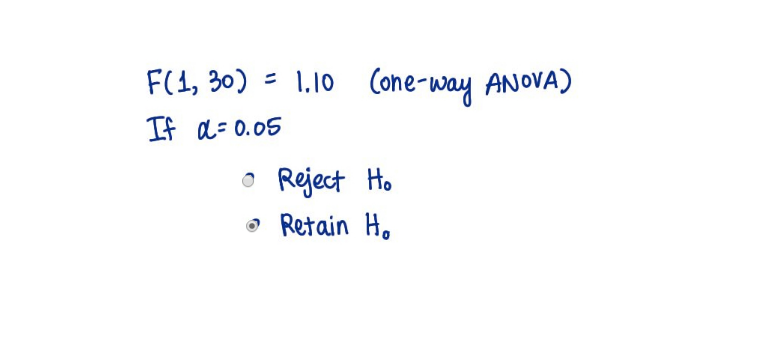 F(1, 30) = 1.10 (one-way ANOVA)
If α = 0.05
Reject H₀
Retain H₀